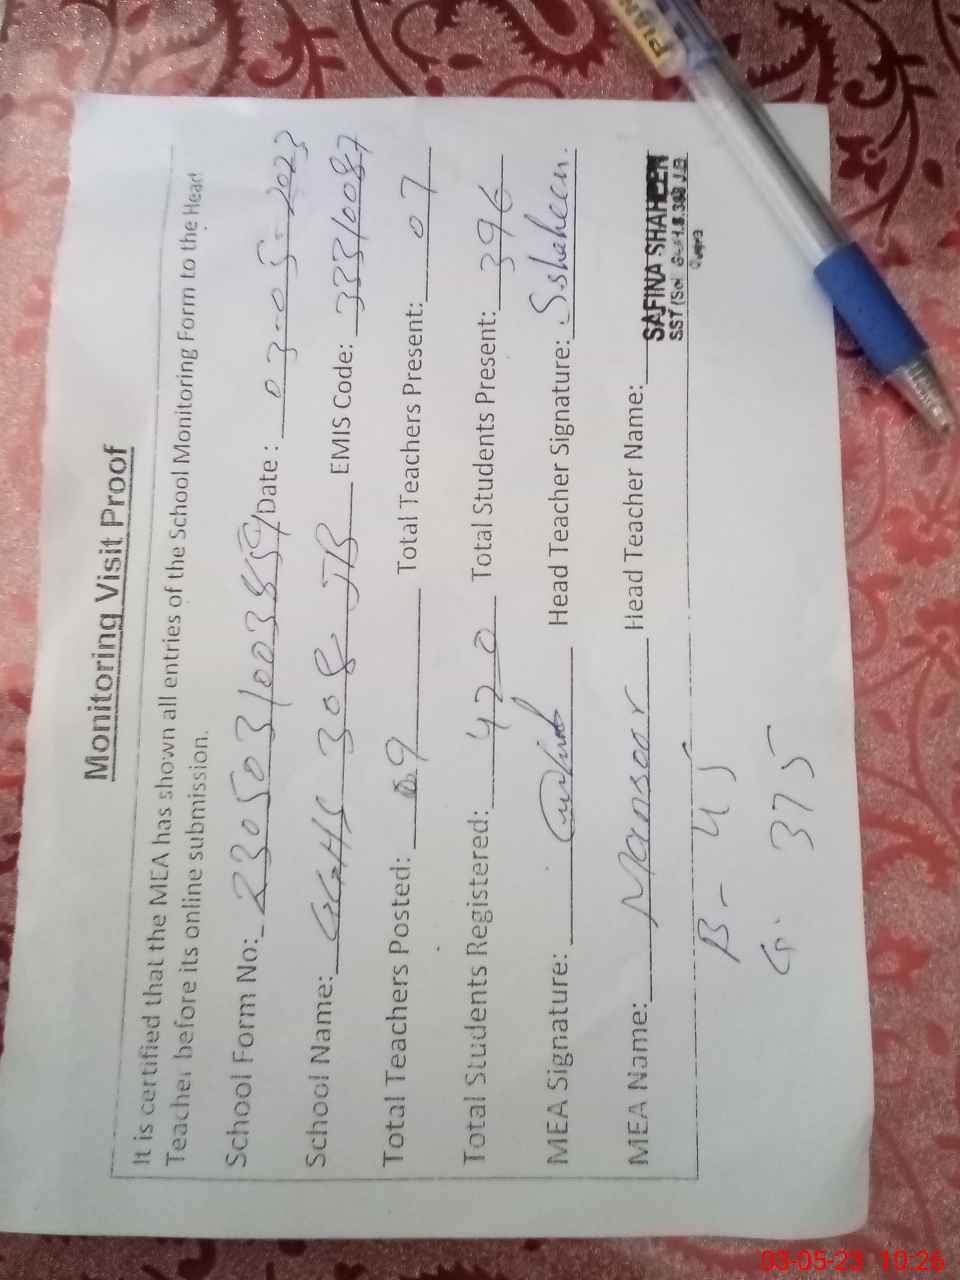 Monitoring Visit Proof
It is certified that the MEA has shown all entries of the School Monitoring Form to the Head
Teacher before its online submission.
School Form No: Date: 03-05-2023
School Name: GGHS 308 JB EMIS Code: 33310087
Total Teachers Posted: 09 Total Teachers Present: 07
Total Students Registered: 420 Total Students Present: 396
MEA Signature: Head Teacher Signature: S.shaheen.
MEA Name: Mansoor Head Teacher Name: SAFINA SHAHEEN
B- 45
G. 375
PIANO
03-05-23 10:26